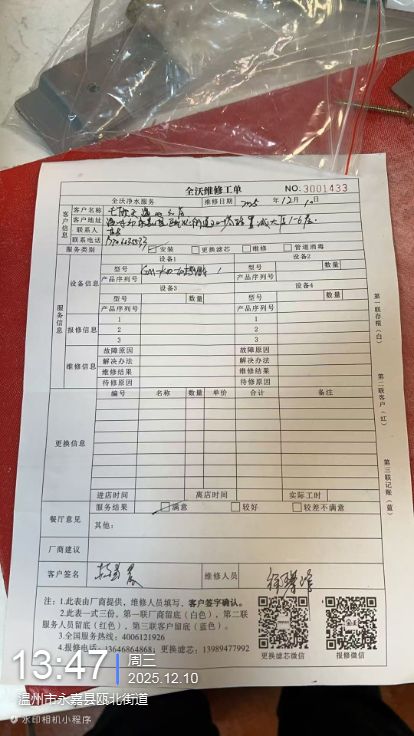 全沃维修工单
NO:3001433
全沃净水服务 维修日期 2025年12月10日
客户信息
客户名称
客户地址
联系人
联系电话
服务类别 ☑安装 □更换滤芯 □维修 □管道消毒
服务信息
设备信息
设备1 设备2
型号 数量 型号 数量
产品序列号 产品序列号
设备3 设备4
型号 数量 型号 数量
产品序列号 产品序列号
报修信息
1 1
2 2
3 3
维修信息
故障原因 故障原因
解决办法 解决办法
维修结果 维修结果
待修原因 待修原因
更换信息
编号 名称 数量 单价 合计 备注
进店时间 离店时间 实际工时
餐厅意见
服务结果 ☑满意 □较好 □较差不满意
其他:
厂商建议
客户签名 维修人员
注:1.此表由厂商提供,维修人员填写,客户签字确认。
2.此表一式三份,第一联厂商留底(白色),第二联
服务人员留底(红色),第三联客户留底(蓝色)。
3.全国服务热线:4006121926
4.报修电话:13646864868,更换滤芯:13989477992
更换滤芯微信 报修微信
第一联存根(白)
第二联客户(红)
第三联记账(蓝)
13:47
周三
2025.12.10
温州市永嘉县瓯北街道
水印相机小程序